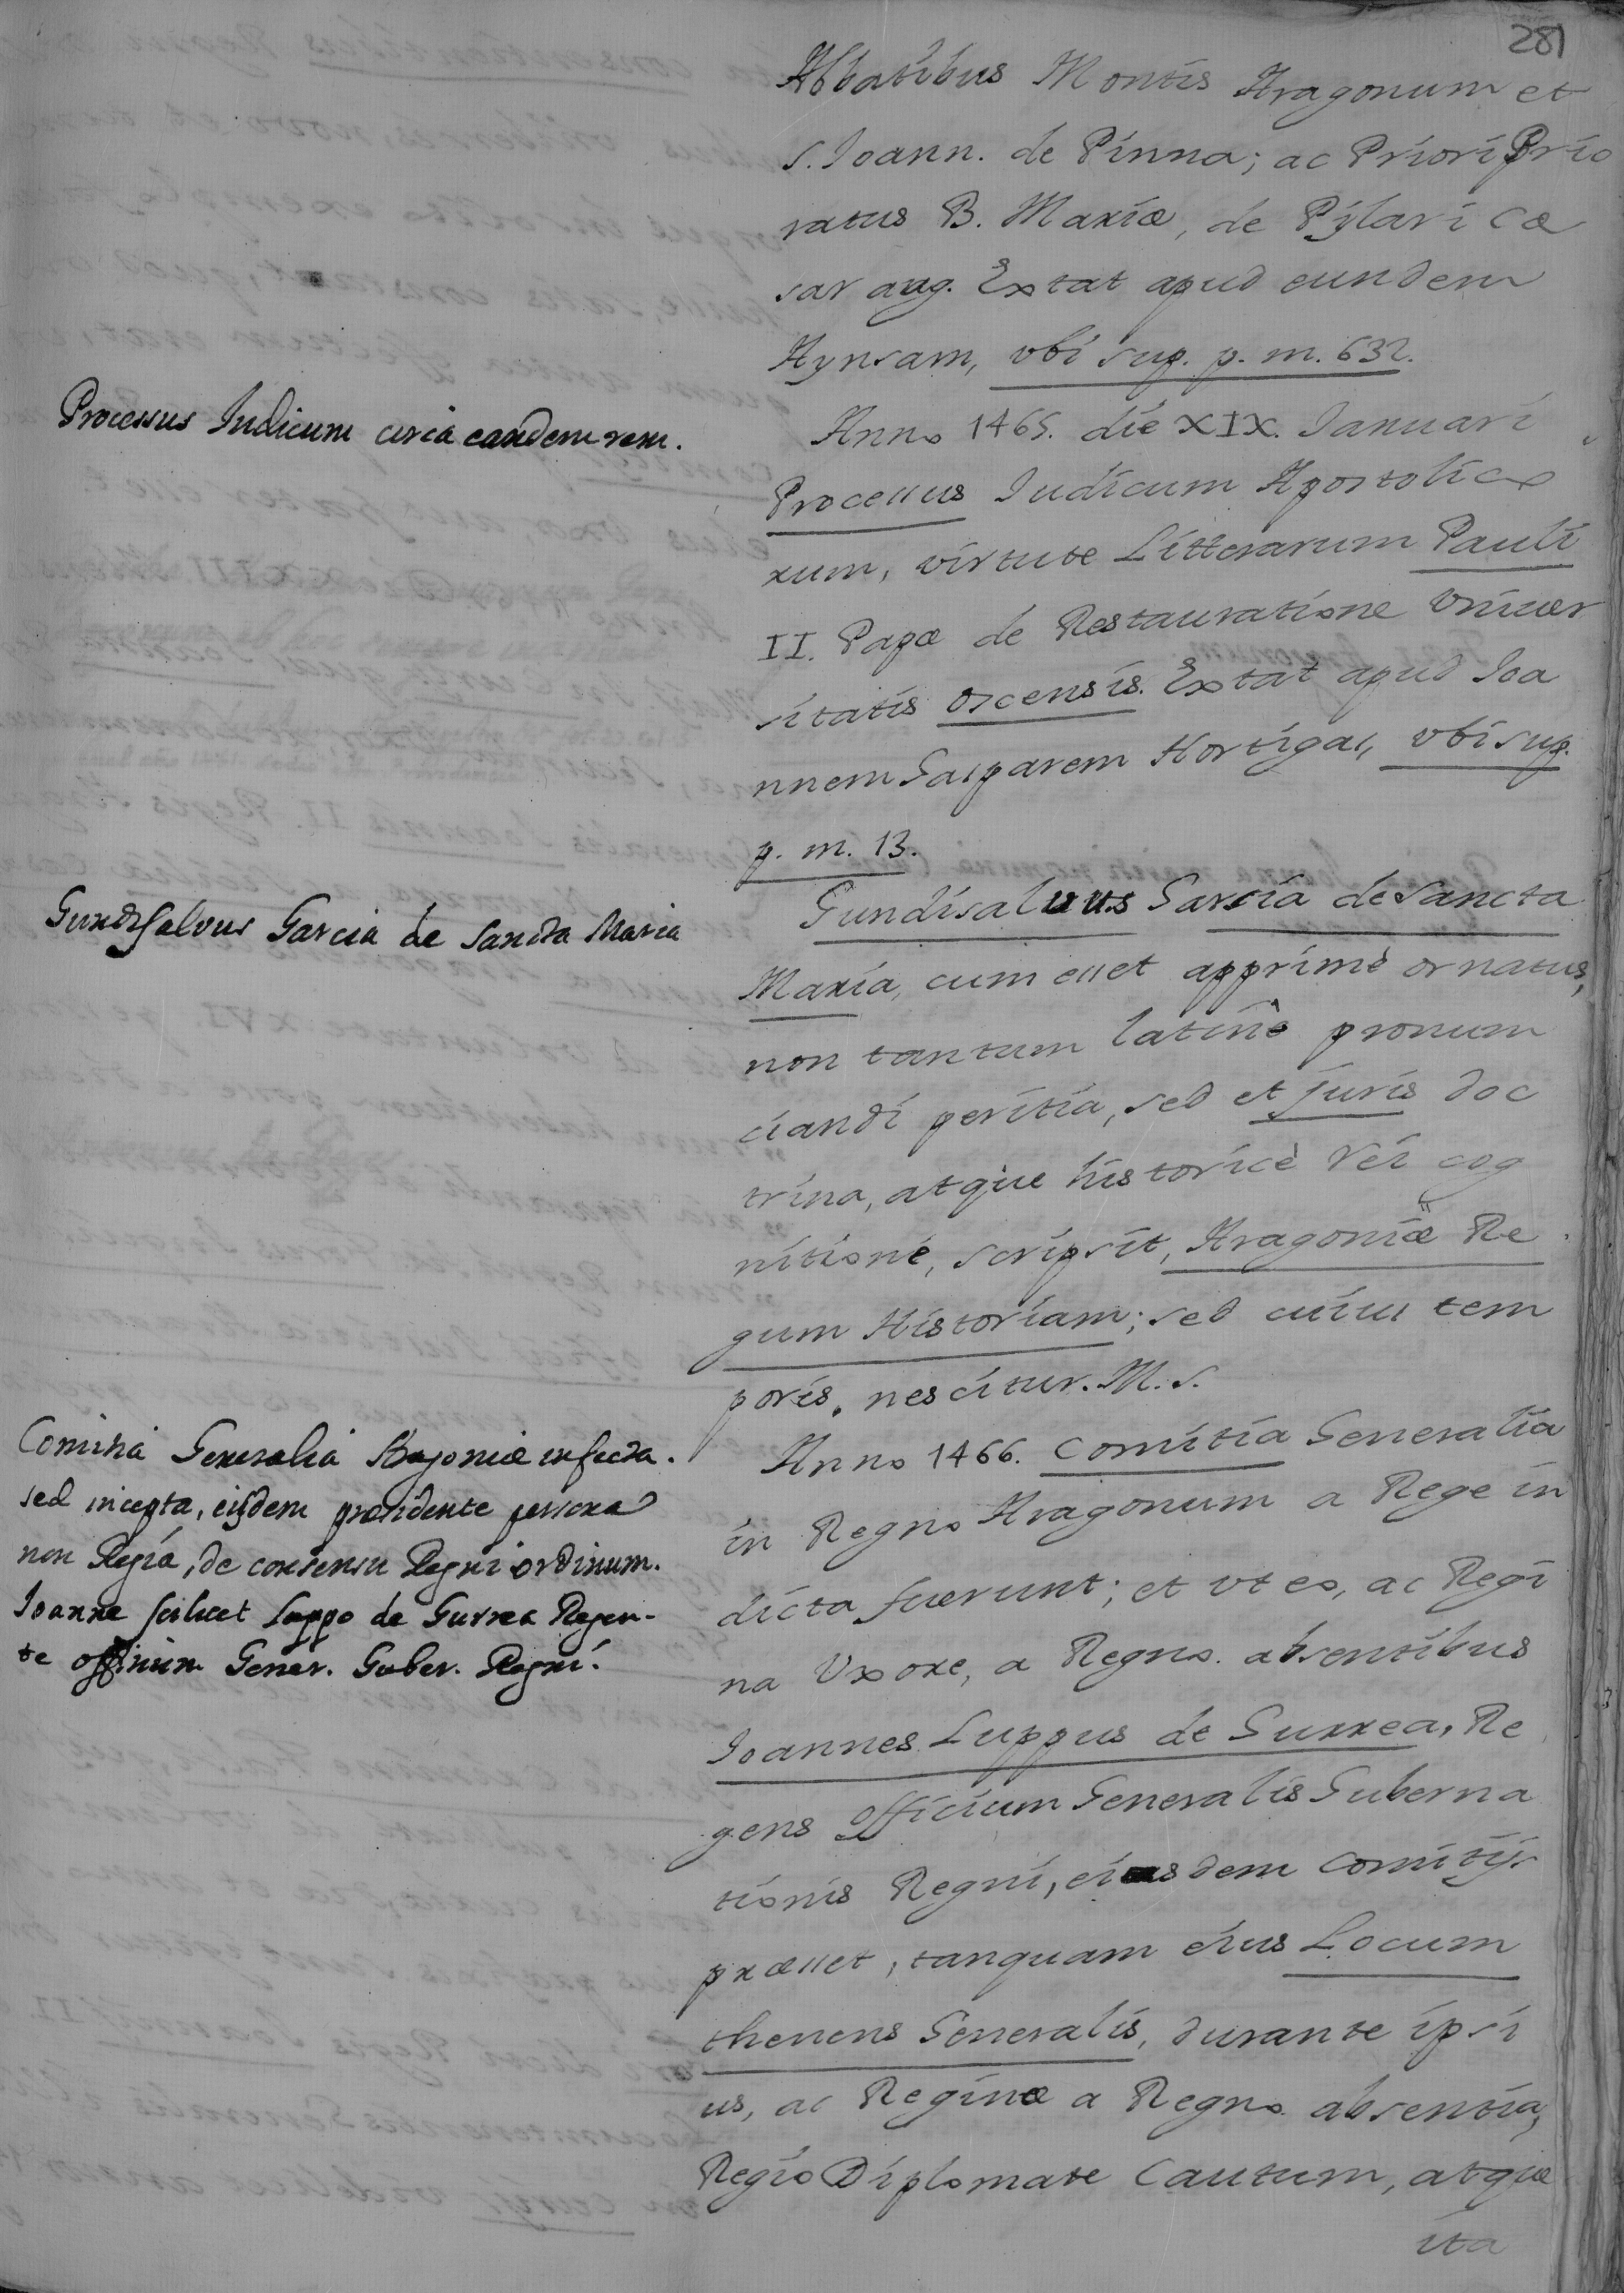 281
Abbatibus Montis Aragonum et
S. Ioann. de Pinna; ac Priori Prio
ratus B. Mariæ, de Pylari Cæ
sar aug. Extat apud eundem
Aynsam, vbi sup. p. m. 632.
Processus Iudicum circa eandem rem.
Anno 1465. die XIX. Ianuari
Processus Iudicum Apostolico
rum, virtute Litterarum Pauli
II. Papæ de Restauratione Vniver
sitatis oscensis. Extat apud Ioa
nnem Gasparem Hortigas, vbi sup.
p. m. 13.
Gundisalvus Garcia de Sancta Maria
Gundisalvus Garcia de Sancta
Maria, cum esset apprimè ornatus,
non tantum latinè pronum
ciandi peritia, sed et juris doc
trina, atque historicè rei cog
nitionè, scripsit, Aragoniæ Re
gum Historiam; sed cuius tem
poris, nescitur. M. S.
Comitia Generalia Aragoniæ infecta.
sed incepta, eisdem præsidente persona
non Regia, de consensu Regni ordinum.
Ioanne scilicet Luppo de Gurrea Regen-
te officium Gener. Guber. Regni.
Anno 1466. Comitia Generalia
in Regno Aragonum a Rege in
dicta fuerunt; et vt eo, ac Regi
na Uxore, a Regno absentibus
Ioannes Luppus de Gurrea, Re
gens officium Generalis Guberna
tionis Regni, eiusdem Comitijs
præesset, tanquam eius Locum
thenens Generalis, durante ipsi
us, ac Reginæ a Regno absentia,
Regio Diplomate Cautum, atque
ita